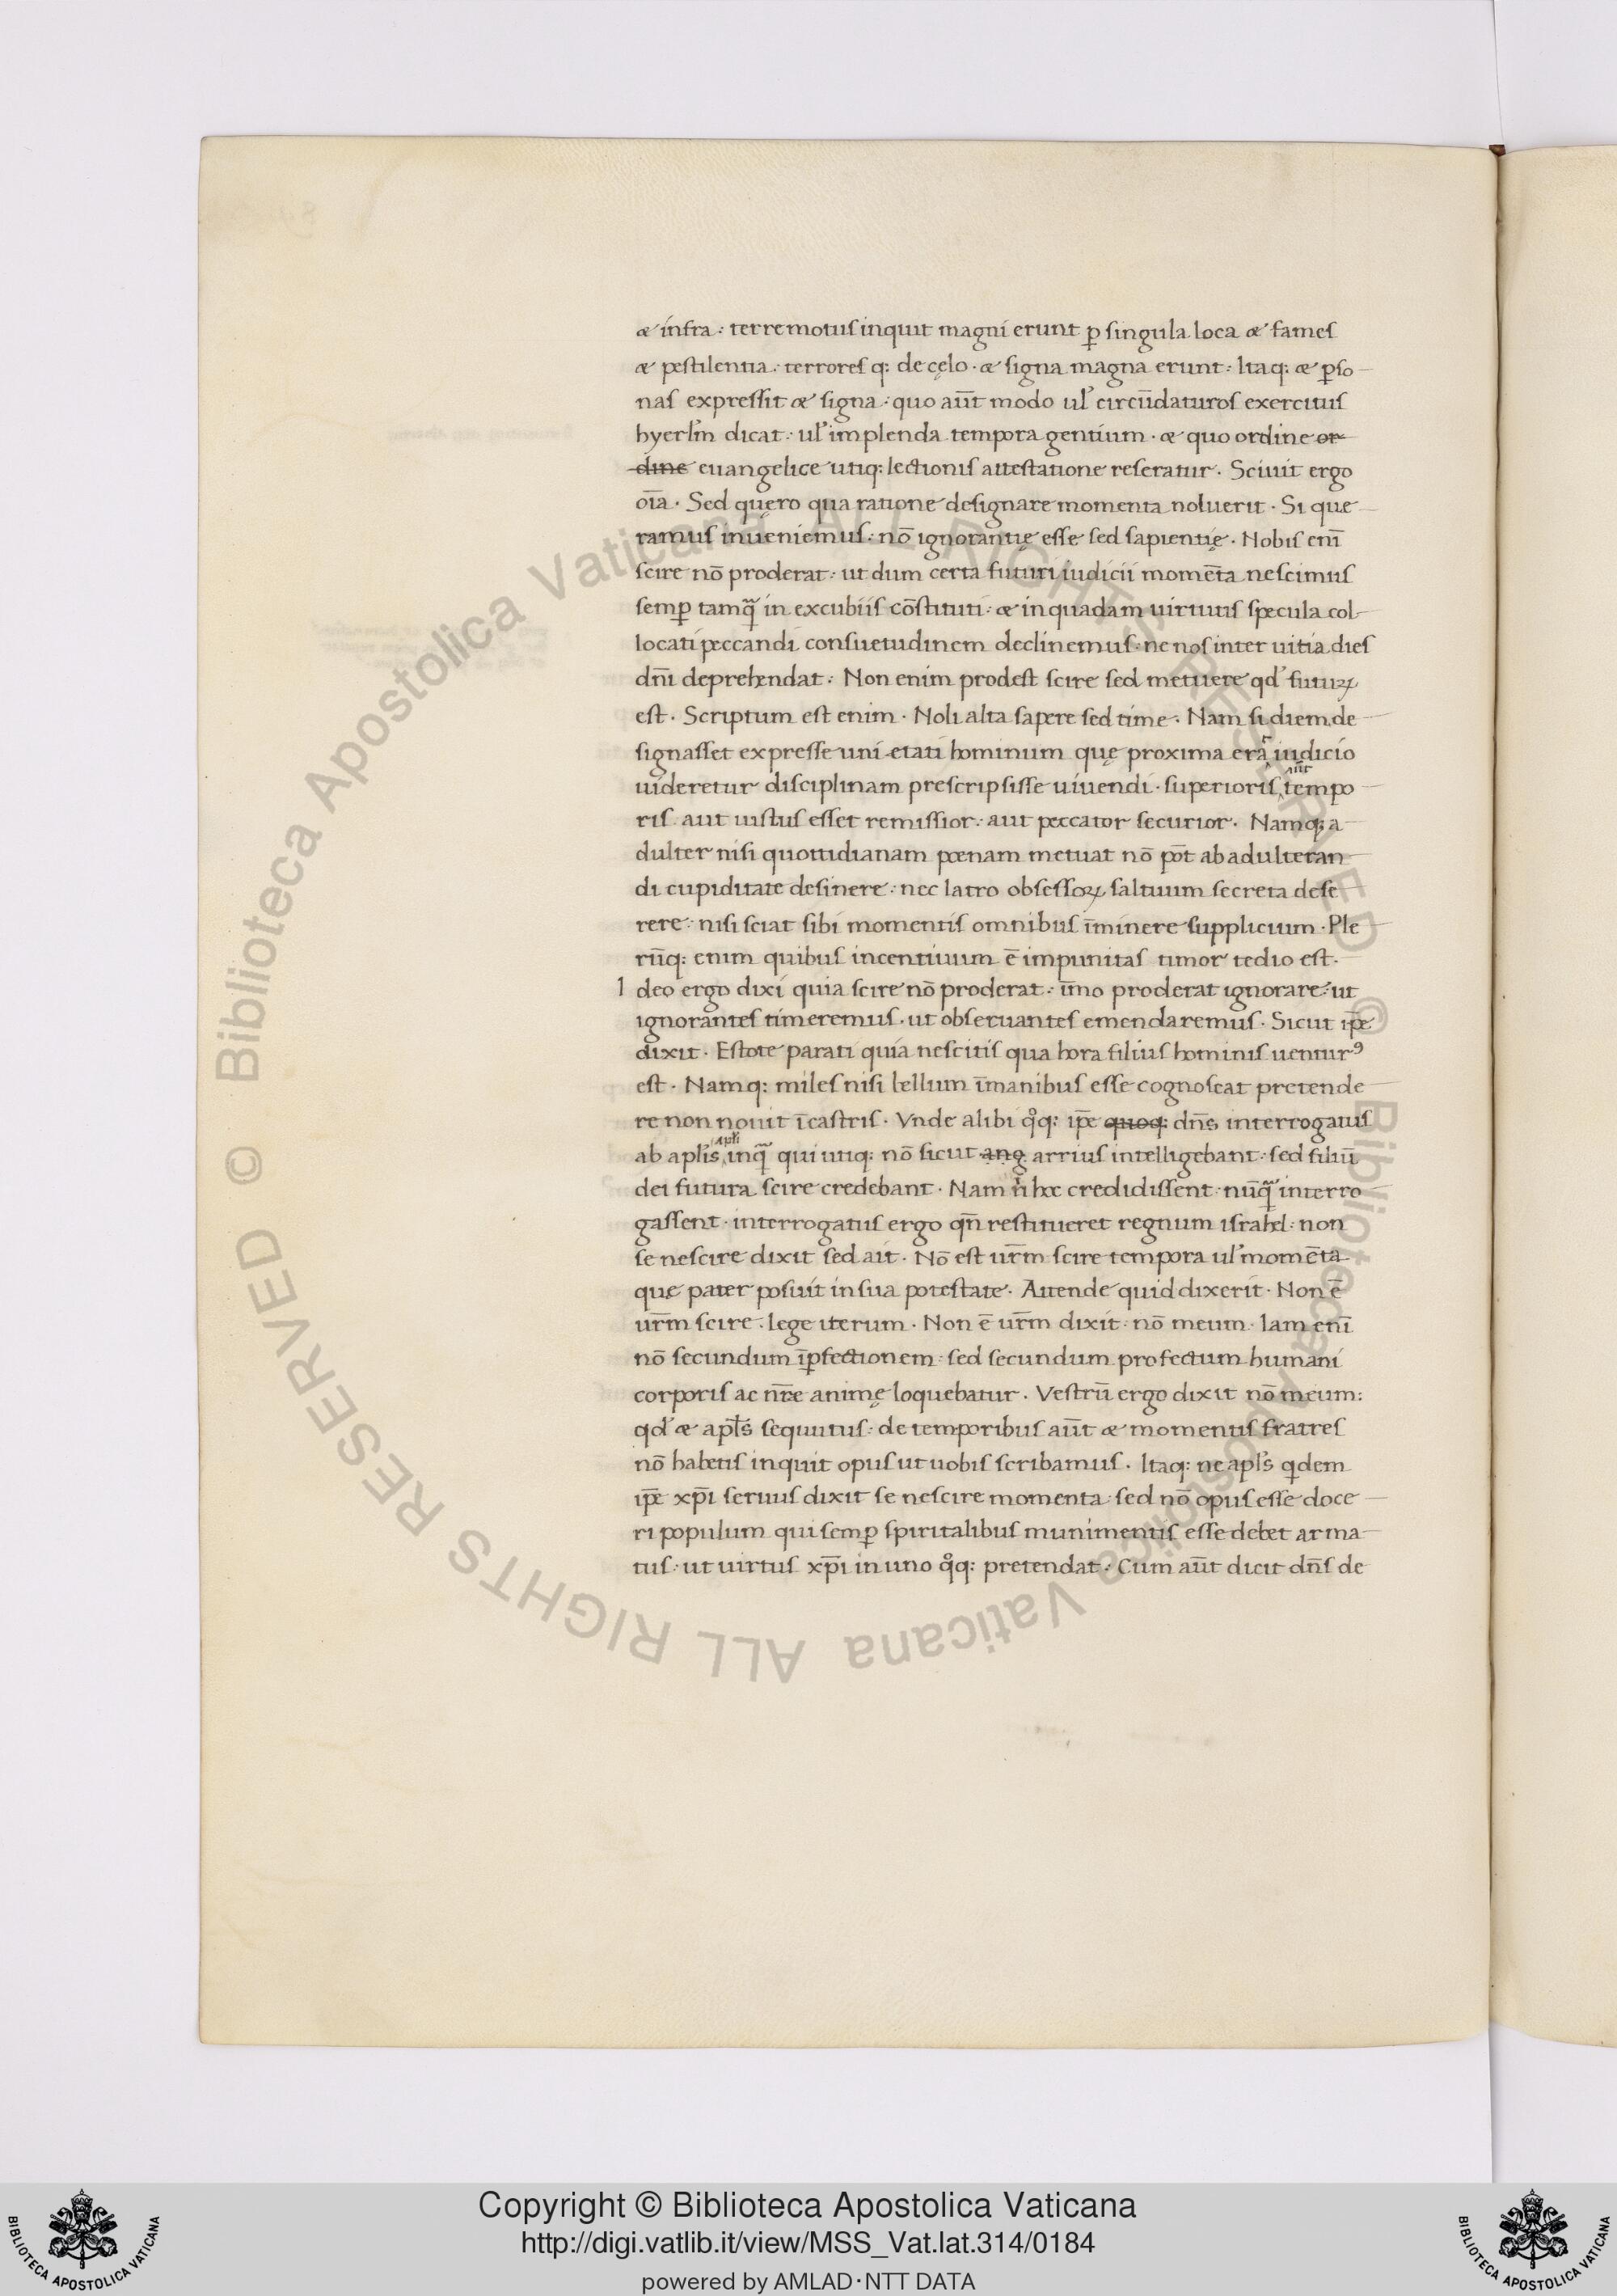 & infra : terremotus inquit magni erunt ꝑ singula loca & fames
& pestilentia : terrores q: de cęlo · & signa magna erunt : Itaq: & ꝑso
nas expressit & signa : quo aūt modo ul' circūdaturos exercitus
hyerl'm dicat : ul' implenda tempora gentium · & quo ordine or
dine euangelice utiq: lectionis attestatione reseratur · Sciuit ergo
oīa · Sed quęro qua ratione designare momenta noluerit · Si que
ramus inueniemus : nō ignorantię esse sed sapientię · Nobis eni̅
scire nō proderat : ut dum certa futuri iudicii momēta nescimus
semꝑ tamq̄ in excubiis cōstituti : & in quadam uirtutis specula col
locati peccandi consuetudinem declinemus : ne nos inter uitia dies
dn̄i deprehendat : Non enim prodest scire sed metuere qd' futuꝝ
est · Scriptum est enim · Noli alta sapere sed time · Nam si diem de
signasset expresse uni etati hominum quę proxima erat iudicio
uideretur disciplinam prescripsisse uiuendi · superioris aūt tempo
ris aut iustus esset remissior : aut peccator securior · Namq: a
dulter nisi quottidianam pœnam metuat nō pōt ab adulteran
di cupiditate desinere : nec latro obsessoꝝ saltuum secreta dese
rere : nisi sciat sibi momentis omnibus īminere supplicium · Ple
rūq: enim quibus incentiuum ē impunitas timor tedio est ·
I deo ergo dixi quia scire nō proderat : īmo proderat ignorare : ut
ignorantes timeremus · ut obseruantes emendaremus · Sicut ip̄e
dixit · Estote parati quia nescitis qua hora filius hominis uenturꝰ
est · Namq: miles nisi bellum īmanibus esse cognoscat pretende
re non nouit ī castris · Vnde alibi qͦq: ip̄e quoq: dn̄s interrogatus
ab apl'is apl'i inq̄ qui utiq: nō sicut ang arrius intelligebant : sed filiū
dei futura scire credebant · Nam n̍ hoc credidissent : nūq̄ interro
gassent · interrogatus ergo qn̄ restitueret regnum israhel : non
se nescire dixit sed ait · Nō est ur̄m scire tempora ul' momēta
que pater posuit in sua potestate · Attende quid dixerit · Non ē
ur̄m scire · lege iterum · Non ē ur̄m dixit : nō meum · Iam eni̅
nō secundum īꝑfectionem : sed secundum profectum humani
corporis ac nr̄e animę loquebatur · Vestrū ergo dixit nō meum :
qd' & apl's sequutus : de temporibus aūt & momentis fratres
nō habetis inquit opus ut uobis scribamus · Itaq: ne apl's qidem
ip̄e xp̄i seruus dixit se nescire momenta : sed nō opus esse doce
ri populum qui semꝑ spiritalibus munimentis esse debet arma
tus : ut uirtus xp̄i in uno qͦq: pretendat · Cum aūt dicit dn̄s de
© Biblioteca Apostolica Vaticana ALL RIGHTS RESERVED
© Biblioteca Apostolica Vaticana ALL RIGHTS RESERVED
Copyright © Biblioteca Apostolica Vaticana
http://digi.vatlib.it/view/MSS_Vat.lat.314/0184
powered by AMLAD·NTT DATA
BIBLIOTECA APOSTOLICA VATICANA
BIBLIOTECA APOSTOLICA VATICANA